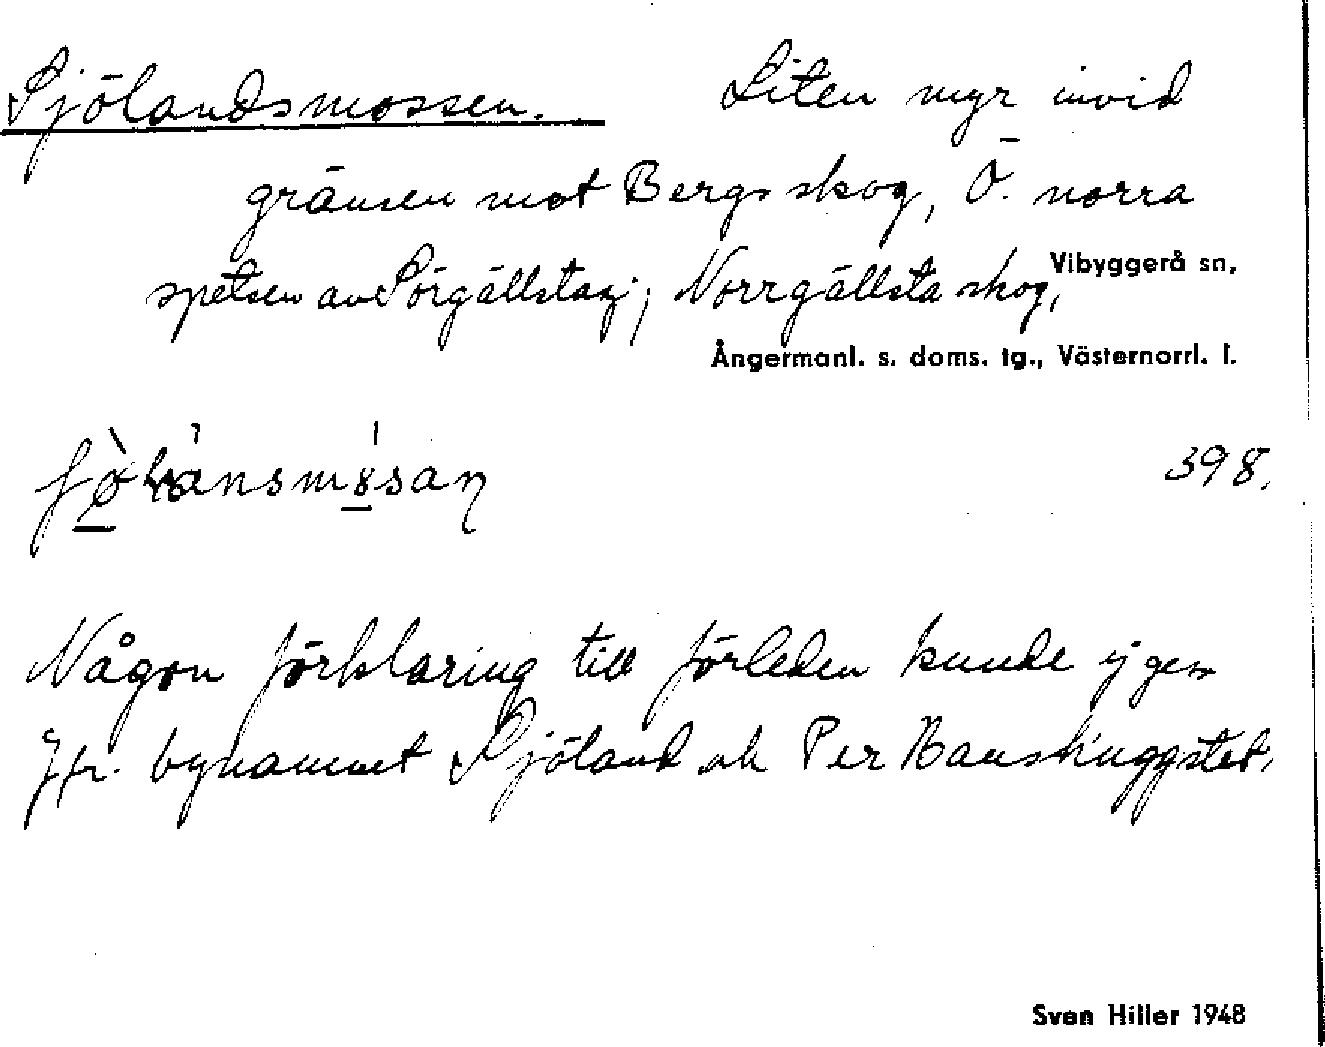 Sjölandsmossen. Liten myr invid
gränsen mot Bergs skog, Ö. norra
spetsen av Sörgällstasj; Norrgällsta skog,
Vibyggerå sn,
Ångermanl. s. doms. tg., Västernorrl. l.
398.
Någon förklaring till förleden kunde ej ges
Jfr. bynamnet Sjöland och Per Hanshuggstet.
Sven Hiller 1948